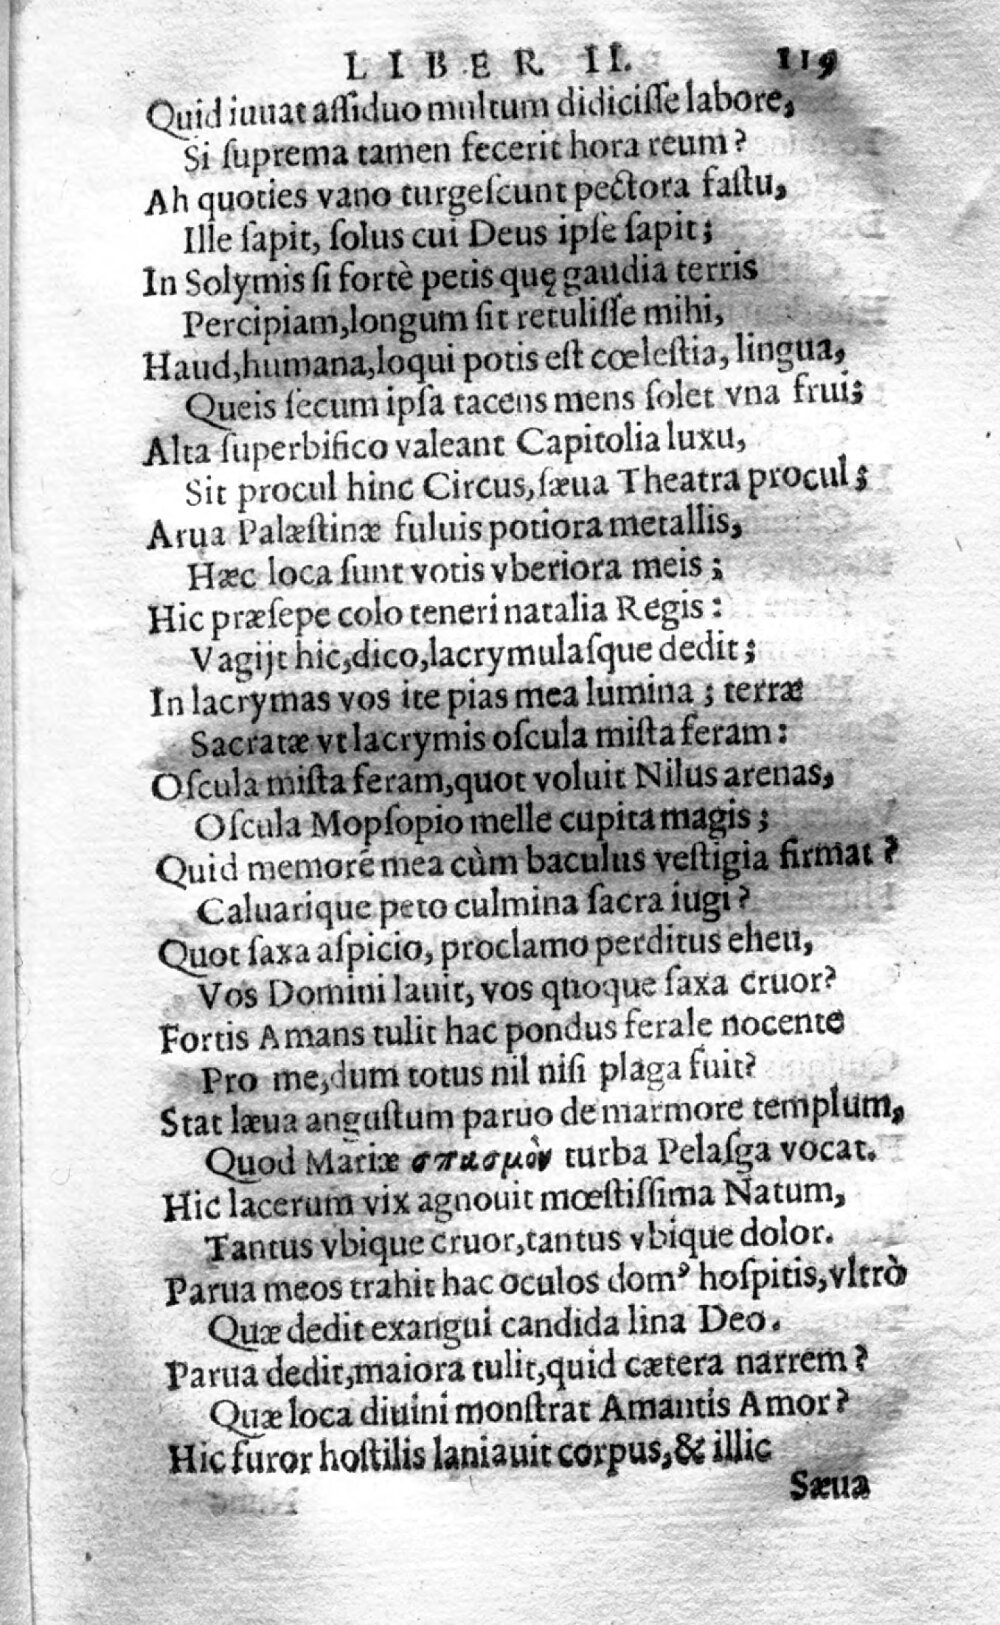 LIBER II. 119
Quid iuuat aſſiduo multum didiciſſe labore,
Si ſuprema tamen fecerit hora reum?
Ah quoties vano turgeſcunt pectora faſtu,
Ille ſapit, ſolus cui Deus ipſe ſapit;
In Solymis ſi fortè petis quę gaudia terris
Percipiam,longum ſit retuliſſe mihi,
Haud,humana,loqui potis eſt cœleſtia, lingua,
Queis ſecum ipſa tacens mens ſolet vna frui;
Alta ſuperbifico valeant Capitolia luxu,
Sit procul hinc Circus,ſæua Theatra procul;
Arua Palæſtinæ fuluis potiora metallis,
Hæc loca ſunt votis vberiora meis;
Hic præſepe colo teneri natalia Regis:
Vagijt hic,dico,lacrymulaſque dedit;
In lacrymas vos ite pias mea lumina; terræ
Sacratæ vt lacrymis oſcula miſta feram:
Oſcula miſta feram,quot voluit Nilus arenas,
Oſcula Mopſopio melle cupita magis;
Quid memorē mea cùm baculus veſtigia firmat?
Caluarique peto culmina ſacra iugi?
Quot ſaxa aſpicio, proclamo perditus eheu,
Vos Domini lauit, vos quoque ſaxa cruor?
Fortis Amans tulit hac pondus ferale nocente
Pro me,dum totus nil niſi plaga fuit?
Stat læua anguſtum paruo de marmore templum,
Quod Mariæ σπασμὸν turba Pelaſga vocat.
Hic lacerum vix agnouit mœſtiſſima Natum,
Tantus vbique cruor,tantus vbique dolor.
Parua meos trahit hac oculos domꝰ hoſpitis,vltrò
Quæ dedit exangui candida lina Deo.
Parua dedit,maiora tulit,quid cætera narrem?
Quæ loca diuini monſtrat Amantis Amor?
Hic furor hoſtilis laniauit corpus,& illic
Sæua